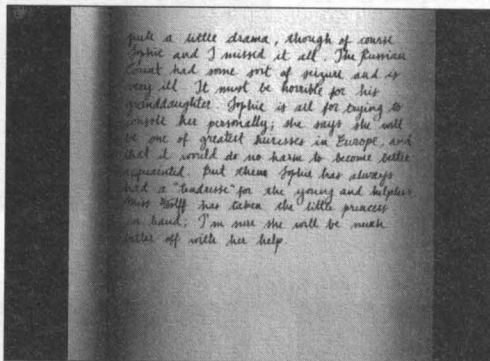 quite a little drama, though of course
Sophie and I missed it all. The Russian
Count had some sort of seizure and is
very ill. It must be horrible for his
granddaughter. Sophie is all for trying to
console her personally; she says she will
be one of greatest heiresses in Europe, and
that it would do no harm to become better
acquainted. But then Sophie has always
had a "tendresse" for the young and helpless.
Miss Wolff has taken the little princess
in hand; I'm sure she will be much
better off with her help.